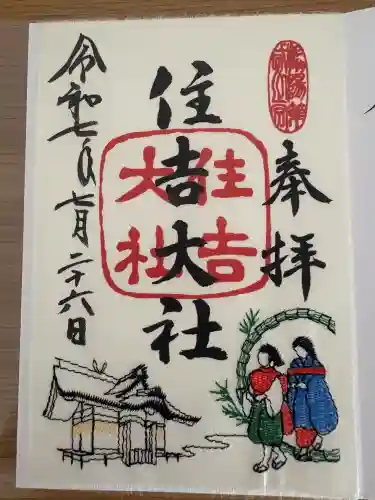 奉拝
住吉大社
住吉
大社
令和七年七月二十六日